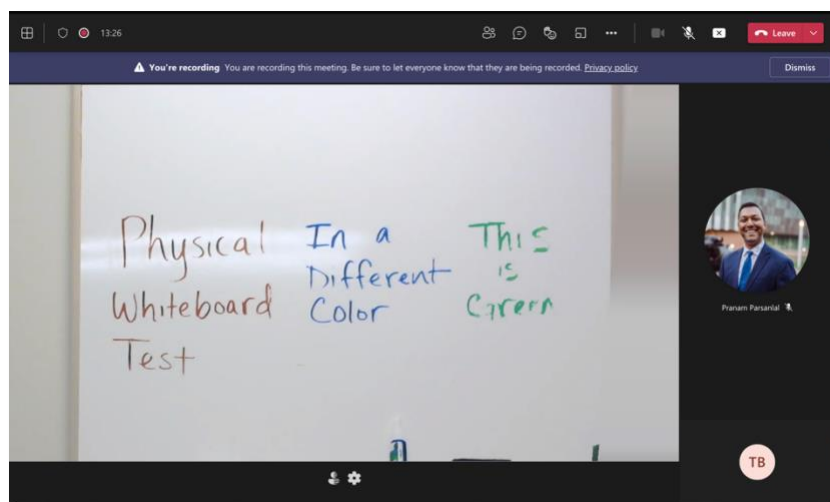 13:26
Leave
You're recording You are recording this meeting. Be sure to let everyone know that they are being recorded. Privacy policy
Dismiss
Physical
Whiteboard
Test
In a
Different
Color
This
is
Green
Pranam Parsanlal
TB